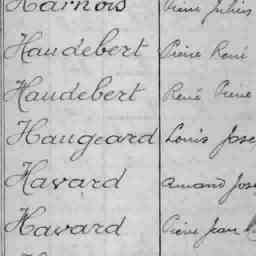 Harnois Pierre Julien
Haudebert Pierre René
Haudebert René Pierre
Haugeard Louis Jose
Havard Amand Jose
Havard Pierre Jean